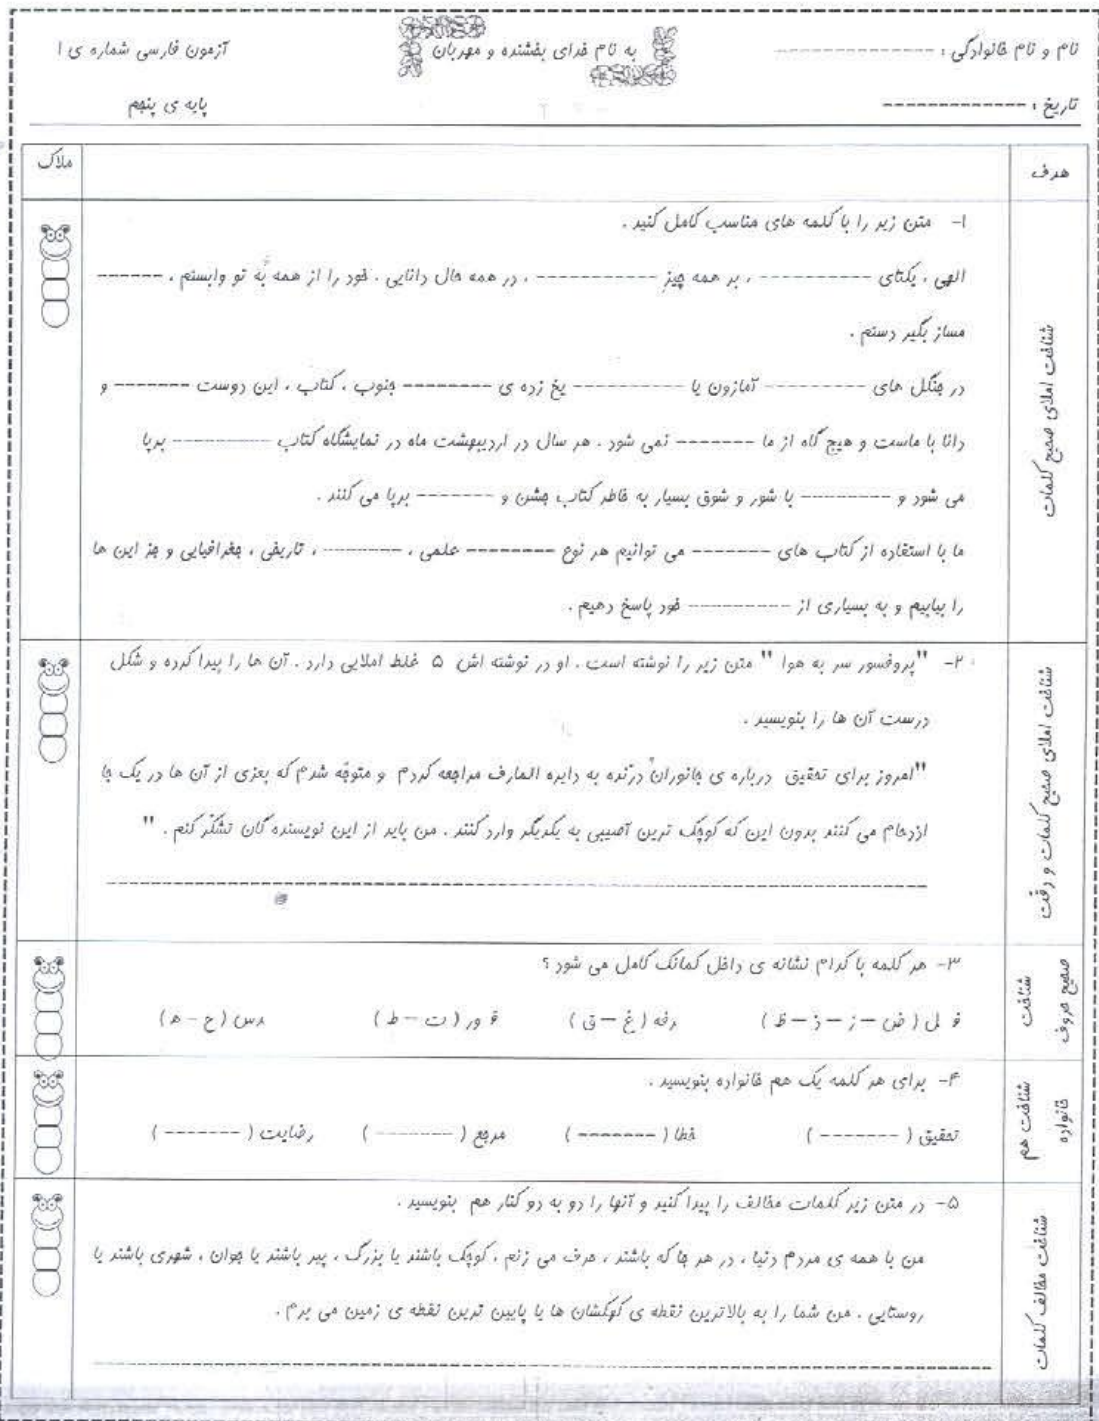 نام و نام خانوادگی : --------------- به نام خدای بخشنده و مهربان آزمون فارسی شماره ی ۱
تاریخ : ------------- پایه ی پنجم
هدف ملاک
شناخت املای صحیح کلمات
۱- متن زیر را با کلمه های مناسب کامل کنید .
الهی ، یکتای ----------- ، بر همه چیز ----------- ، در همه حال دانایی . خود را از همه به تو وابستم ، -------
مساز بگیر دستم .
در جنگل های ---------- آمازون یا ---------- یخ زده ی -------- جنوب ، کتاب ، این دوست ------- و
دانا با ماست و هیچ گاه از ما ------- نمی شود . هر سال در اردیبهشت ماه در نمایشگاه کتاب ---------- برپا
می شود و --------- با شور و شوق بسیار به خاطر کتاب جشن و ------- برپا می کنند .
ما با استفاده از کتاب های ------- می توانیم هر نوع -------- علمی ، -------- ، تاریخی ، جغرافیایی و جز این ها
را بیابیم و به بسیاری از ---------- خود پاسخ دهیم .
شناخت املای صحیح کلمات و دقت
۲- "پروفسور سر به هوا " متن زیر را نوشته است . او در نوشته اش ۵ غلط املایی دارد . آن ها را پیدا کرده و شکل
درست آن ها را بنویسید .
"امروز برای تحقیق درباره ی جانوران درّنده به دایره المارف مراجعه کردم و متوجّه شدم که بعزی از آن ها در یک جا
ازدحام می کنند بدون این که کوچک ترین آصیبی به یکدیگر وارد کنند . من باید از این نویسنده گان تشکّر کنم . "
شناخت صحیح حروف
۳- هر کلمه با کدام نشانه ی داخل کمانک کامل می شود ؟
ف ل ( ض – ز – ذ – ظ ) رفه ( غ – ق ) ور ( ت – ط ) دس ( ح – ه )
شناخت هم خانواده
۴- برای هر کلمه یک هم خانواده بنویسید .
تحقیق ( ------- ) خطا ( ------- ) مرجع ( -------- ) رضایت ( ------- )
شناخت مخالف کلمات
۵- در متن زیر کلمات مخالف را پیدا کنید و آنها را دو به دو کنار هم بنویسید .
من با همه ی مردم دنیا ، در هر جا که باشند ، حرف می زنم . کوچک باشند یا بزرگ ، پیر باشند یا جوان ، شهری باشند یا
روستایی . من شما را به بالاترین نقطه ی کهکشان ها یا پایین ترین نقطه ی زمین می برم .